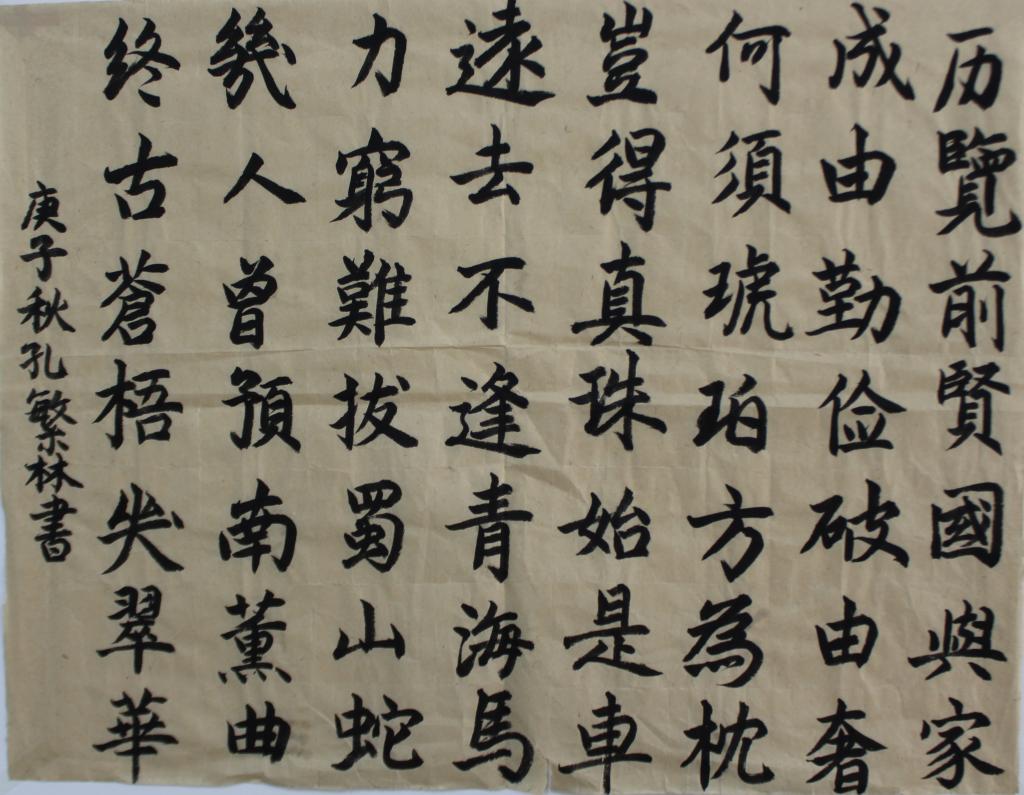 历覽前賢國與家
成由勤俭破由奢
何須琥珀方為枕
豈得真珠始是車
遠去不逢青海馬
力窮難拔蜀山蛇
幾人曾預南薰曲
終古蒼梧哭翠華
庚子秋孔繁林書